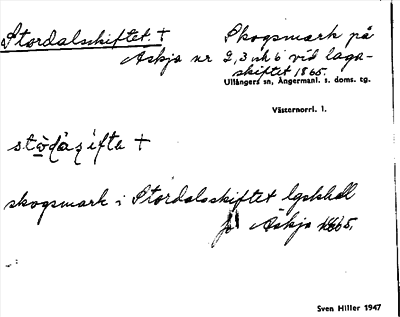 Stordalskiftet. + Skogsmark på
Askja nr 2, 3 och 6 vid laga-
skiftet 1865.
Ullångers sn, Ångermanl. s. doms. tg.
Västernorrl. l.
skogsmark i Stordalsskiftet
på Askja 1865.
Sven Hiller 1947